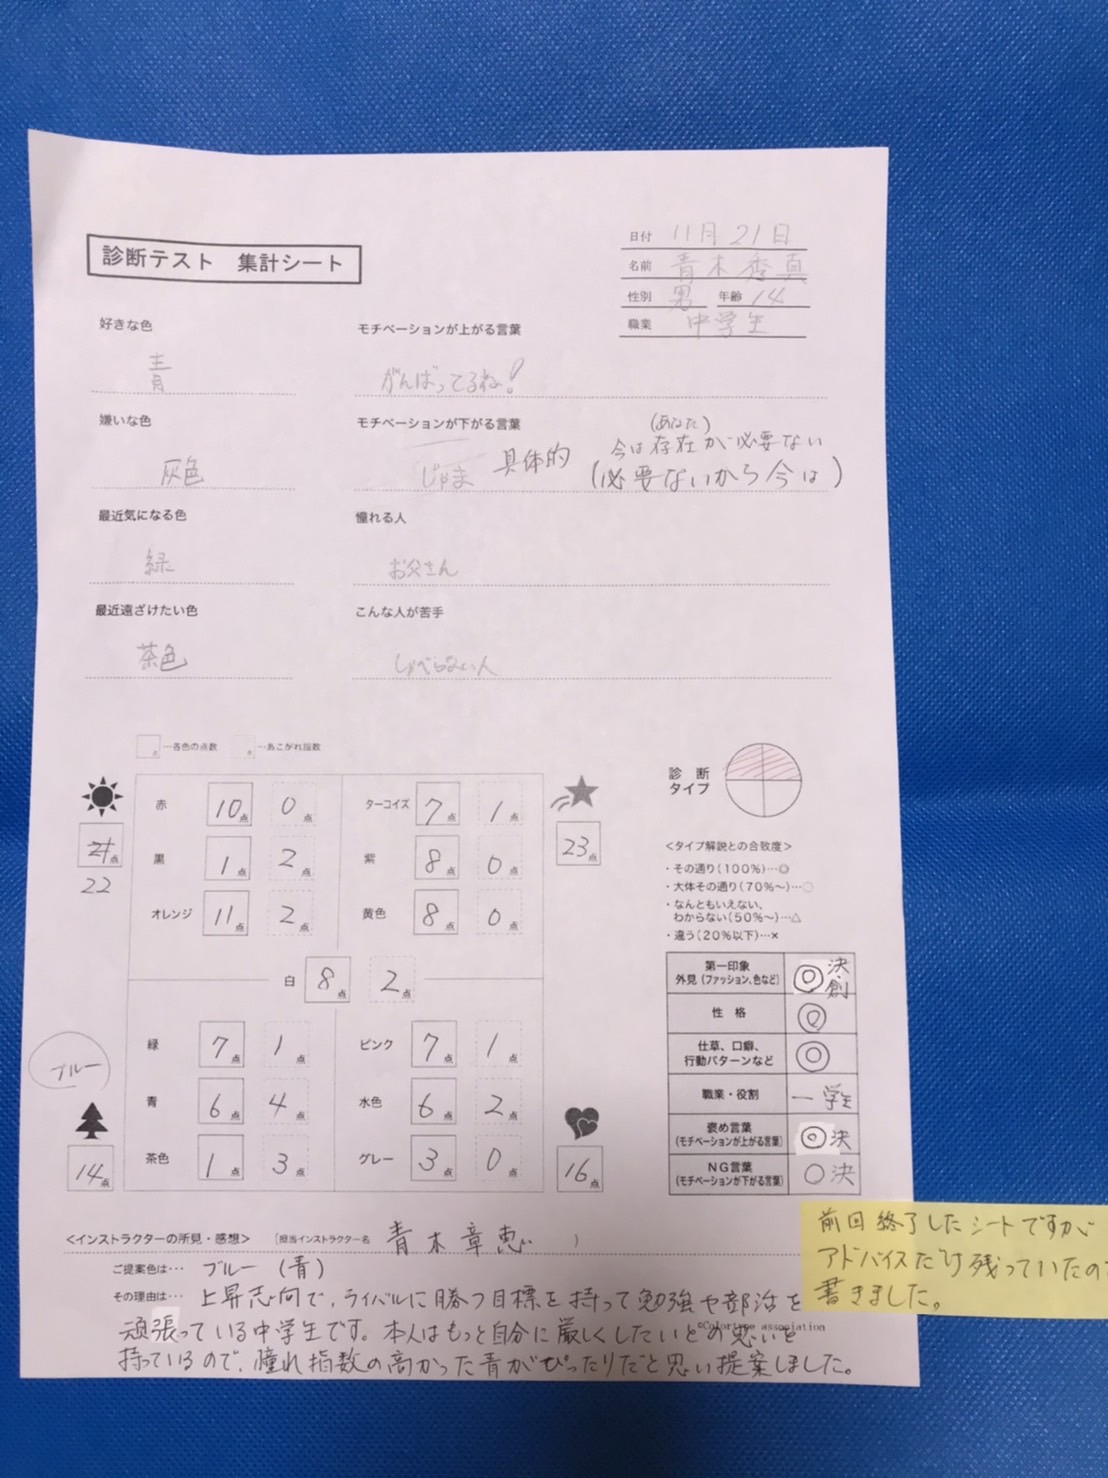 診断テスト 集計シート
日付 11月21日
名前 青木秀真
性別 男 年齢 14
職業 中学生
好きな色
青
モチベーションが上がる言葉
がんばってるね!
嫌いな色
灰色
モチベーションが下がる言葉
じゃま 具体的
(あなた)
今は存在が必要ない
(必要ないから今は)
最近気になる色
緑
憧れる人
お父さん
最近遠ざけたい色
茶色
こんな人が苦手
しゃべらない人
点 …各色の点数 点 …あこがれ指数
診断タイプ
赤 10点 0点
ターコイズ 7点 1点
21点
22
23点
黒 1点 2点
紫 8点 0点
オレンジ 11点 2点
黄色 8点 0点
白 8点 2点
緑 7点 1点
ピンク 7点 1点
ブルー
青 6点 4点
水色 6点 2点
茶色 1点 3点
グレー 3点 0点
14点
16点
<タイプ解説との合致度>
・その通り(100%)…◎
・大体その通り(70%〜)…○
・なんともいえない、
わからない(50%〜)…△
・違う(20%以下)…×
第一印象
外見(ファッション、色など) ◎ 決 創
性格 ◎
仕草、口癖、
行動パターンなど ◎
職業・役割 — 学生
褒め言葉
(モチベーションが上がる言葉) ◎ 決
NG言葉
(モチベーションが下がる言葉) ○ 決
<インストラクターの所見・感想> [担当インストラクター名 青木章恵 ]
ご提案色は… ブルー(青)
その理由は… 上昇志向で、ライバルに勝つ目標を持って勉強や部活を
頑張っている中学生です。本人はもっと自分に厳しくしたいとの思いを
持っているので、憧れ指数の高かった青がぴったりだと思い提案しました。
©Colortype association
前回終了したシートですが
アドバイスだけ残っていたので
書きました。